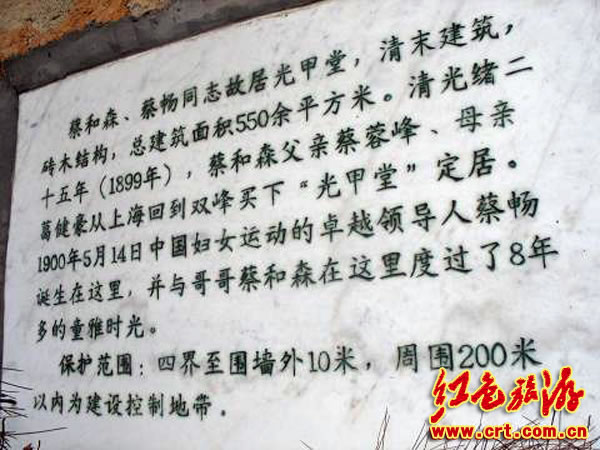 蔡和森、蔡畅同志故居光甲堂，清末建筑，
砖木结构，总建筑面积550余平方米。清光绪二
十五年（1899年），蔡和森父亲蔡蓉峰、母亲
葛健豪从上海回到双峰买下“光甲堂”定居。
1900年5月14日中国妇女运动的卓越领导人蔡畅
诞生在这里，并与哥哥蔡和森在这里度过了8年
多的童雅时光。
保护范围：四界至围墙外10米，周围200米
以内为建设控制地带．
红色旅游
www.crt.com.cn